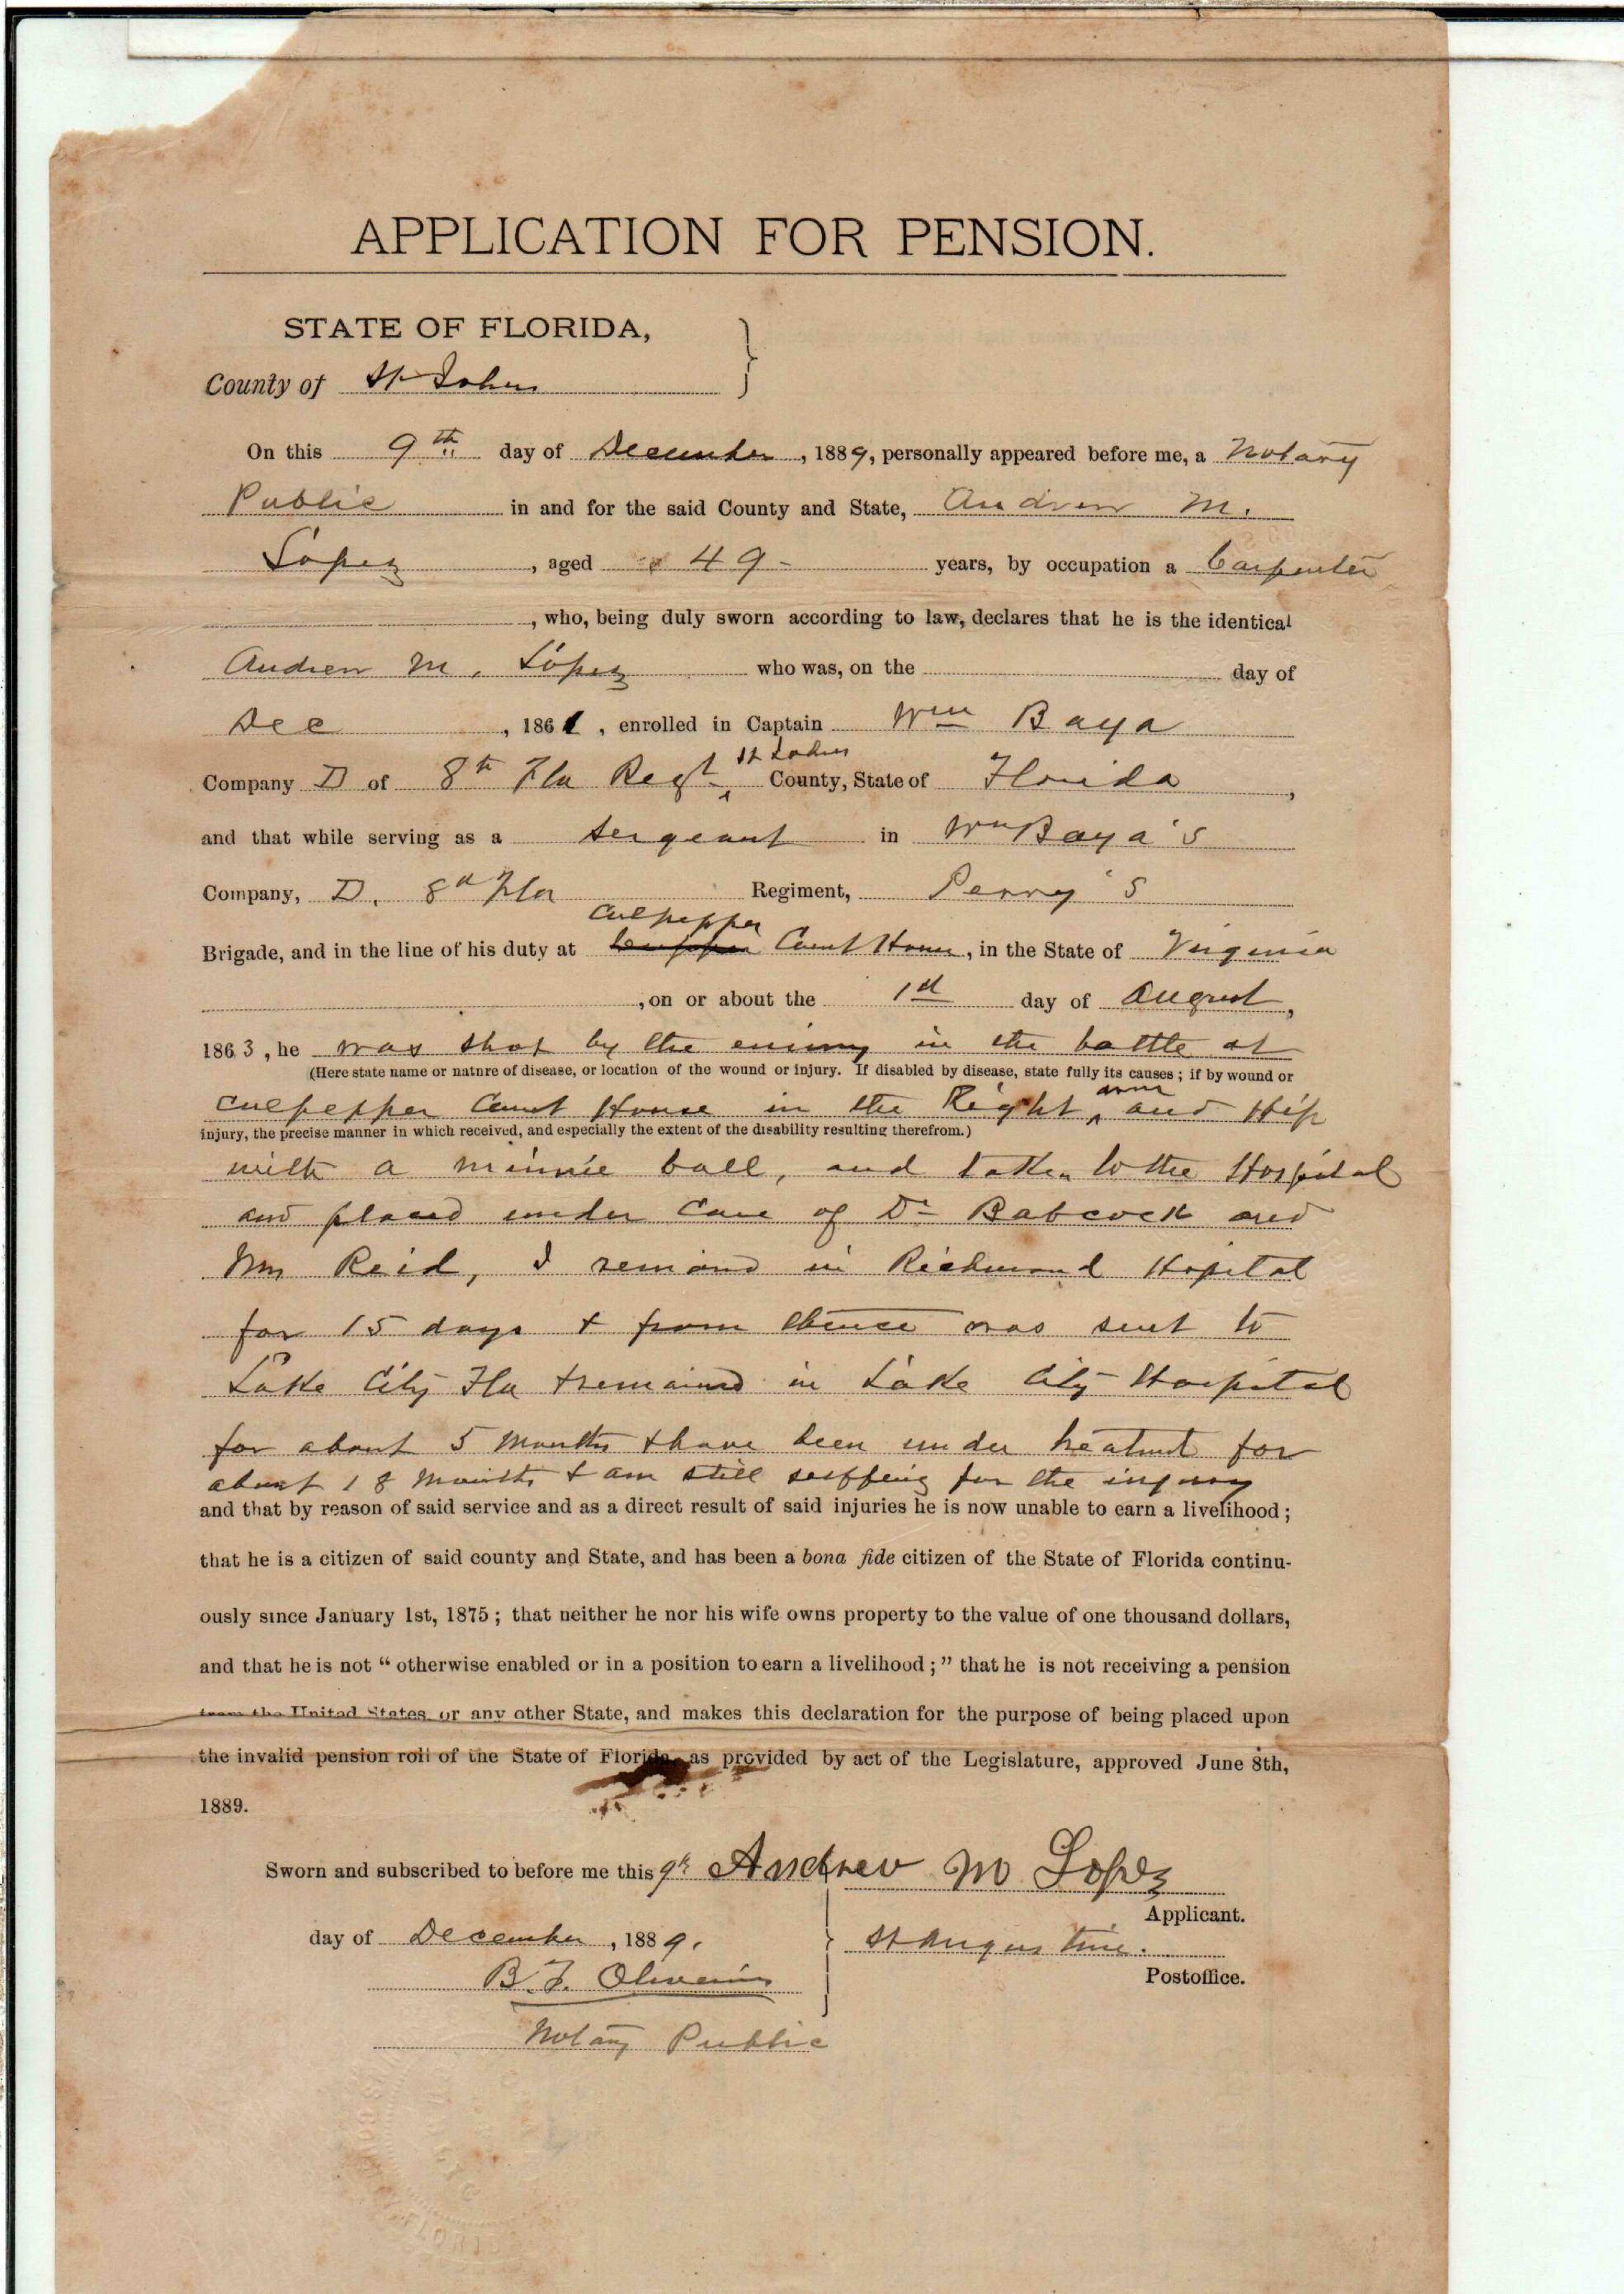 APPLICATION FOR PENSION.
STATE OF FLORIDA,
County of St Johns
On this 9th day of December, 1889, personally appeared before me, a Notary
Public in and for the said County and State, Andrew M.
Lopez, aged 49 - years, by occupation a Carpenter
, who, being duly sworn according to law, declares that he is the identical
Andrew M. Lopez who was, on the day of
Dec, 1861, enrolled in Captain Wm Baya
St Johns
Company D of 8th Fla Regt County, State of Florida,
and that while serving as a Sergeant in Wm Baya's
Company, D. 8th Fla Regiment, Perry's
Culpepper
Brigade, and in the line of his duty at Court House, in the State of Virginia
, on or about the 1st day of August,
1863, he was shot by the enimy in the battle at
(Here state name or natnre of disease, or location of the wound or injury. If disabled by disease, state fully its causes; if by wound or
arm
Culpepper Court House in the Right and Hip
injury, the precise manner in which received, and especially the extent of the disability resulting therefrom.)
with a minnie ball, and taken to the Hospital
and placed under Care of Dr Babcock and
Reid, I remained in Richmond Hospital
for 15 days & from thence was sent to
Lake City Fla & remained in Lake City Hospital
for about 5 Months & have been under treatment for
about 18 Months & am still suffering for the injury
and that by reason of said service and as a direct result of said injuries he is now unable to earn a livelihood;
that he is a citizen of said county and State, and has been a bona fide citizen of the State of Florida continu-
ously since January 1st, 1875; that neither he nor his wife owns property to the value of one thousand dollars,
and that he is not "otherwise enabled or in a position to earn a livelihood;" that he is not receiving a pension
from the United States or any other State, and makes this declaration for the purpose of being placed upon
the invalid pension roll of the State of Florida, as provided by act of the Legislature, approved June 8th,
1889.
Sworn and subscribed to before me this 9th Andrew M Lopez
Applicant.
day of December, 1889. St Augustine.
B. F. Oliveros Postoffice.
Notary Public